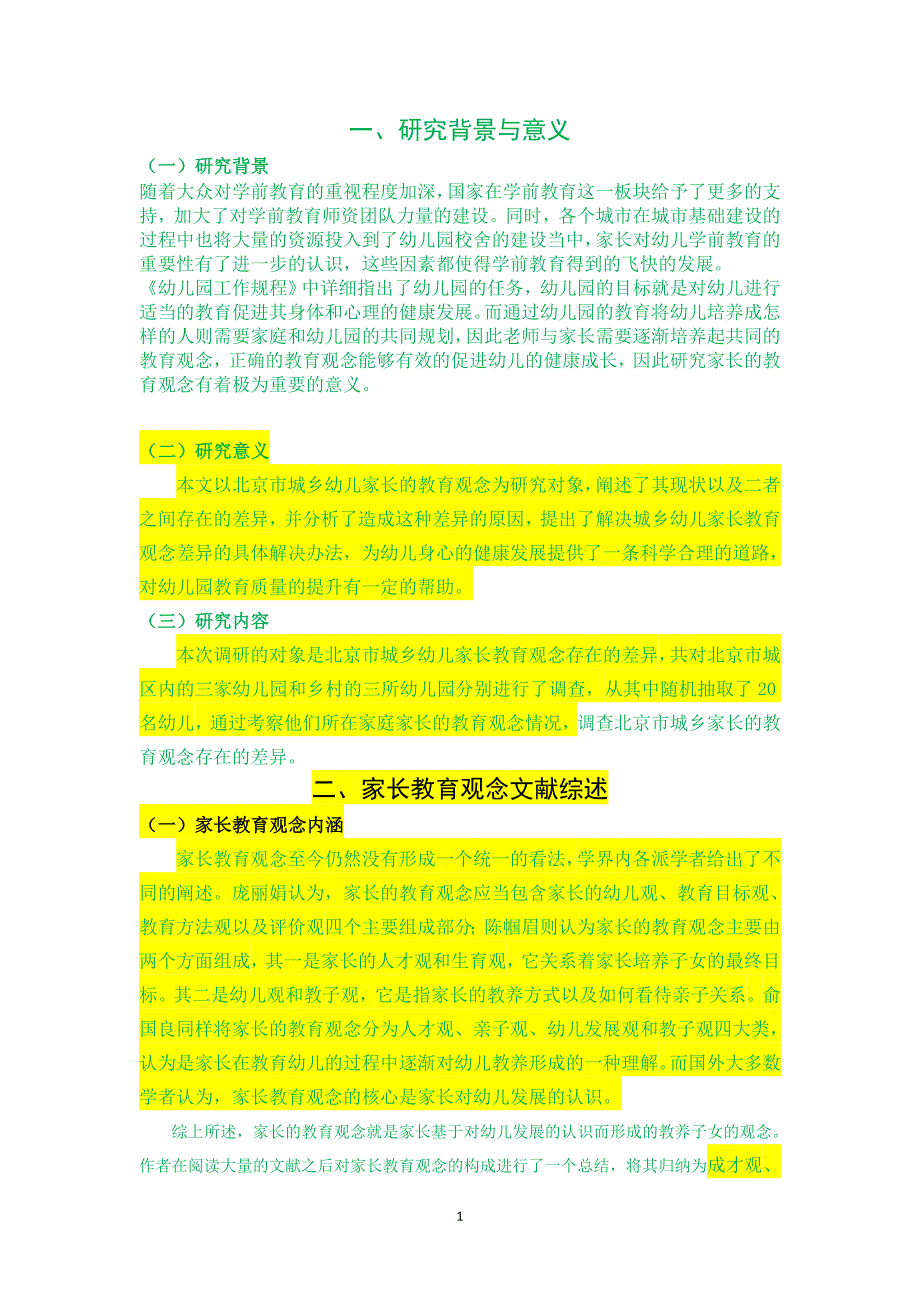 一、研究背景与意义
（一）研究背景
随着大众对学前教育的重视程度加深，国家在学前教育这一板块给予了更多的支
持，加大了对学前教育师资团队力量的建设。同时，各个城市在城市基础建设的
过程中也将大量的资源投入到了幼儿园校舍的建设当中，家长对幼儿学前教育的
重要性有了进一步的认识，这些因素都使得学前教育得到的飞快的发展。
《幼儿园工作规程》中详细指出了幼儿园的任务，幼儿园的目标就是对幼儿进行
适当的教育促进其身体和心理的健康发展。而通过幼儿园的教育将幼儿培养成怎
样的人则需要家庭和幼儿园的共同规划，因此老师与家长需要逐渐培养起共同的
教育观念，正确的教育观念能够有效的促进幼儿的健康成长，因此研究家长的教
育观念有着极为重要的意义。
（二）研究意义
本文以北京市城乡幼儿家长的教育观念为研究对象，阐述了其现状以及二者
之间存在的差异，并分析了造成这种差异的原因，提出了解决城乡幼儿家长教育
观念差异的具体解决办法，为幼儿身心的健康发展提供了一条科学合理的道路，
对幼儿园教育质量的提升有一定的帮助。
（三）研究内容
本次调研的对象是北京市城乡幼儿家长教育观念存在的差异，共对北京市城
区内的三家幼儿园和乡村的三所幼儿园分别进行了调查，从其中随机抽取了 20
名幼儿，通过考察他们所在家庭家长的教育观念情况，调查北京市城乡家长的教
育观念存在的差异。
二、家长教育观念文献综述
（一）家长教育观念内涵
家长教育观念至今仍然没有形成一个统一的看法，学界内各派学者给出了不
同的阐述。庞丽娟认为，家长的教育观念应当包含家长的幼儿观、教育目标观、
教育方法观以及评价观四个主要组成部分；陈帼眉则认为家长的教育观念主要由
两个方面组成，其一是家长的人才观和生育观，它关系着家长培养子女的最终目
标。其二是幼儿观和教子观，它是指家长的教养方式以及如何看待亲子关系。俞
国良同样将家长的教育观念分为人才观、亲子观、幼儿发展观和教子观四大类，
认为是家长在教育幼儿的过程中逐渐对幼儿教养形成的一种理解。而国外大多数
学者认为，家长教育观念的核心是家长对幼儿发展的认识。
综上所述，家长的教育观念就是家长基于对幼儿发展的认识而形成的教养子女的观念。
作者在阅读大量的文献之后对家长教育观念的构成进行了一个总结，将其归纳为成才观、
1